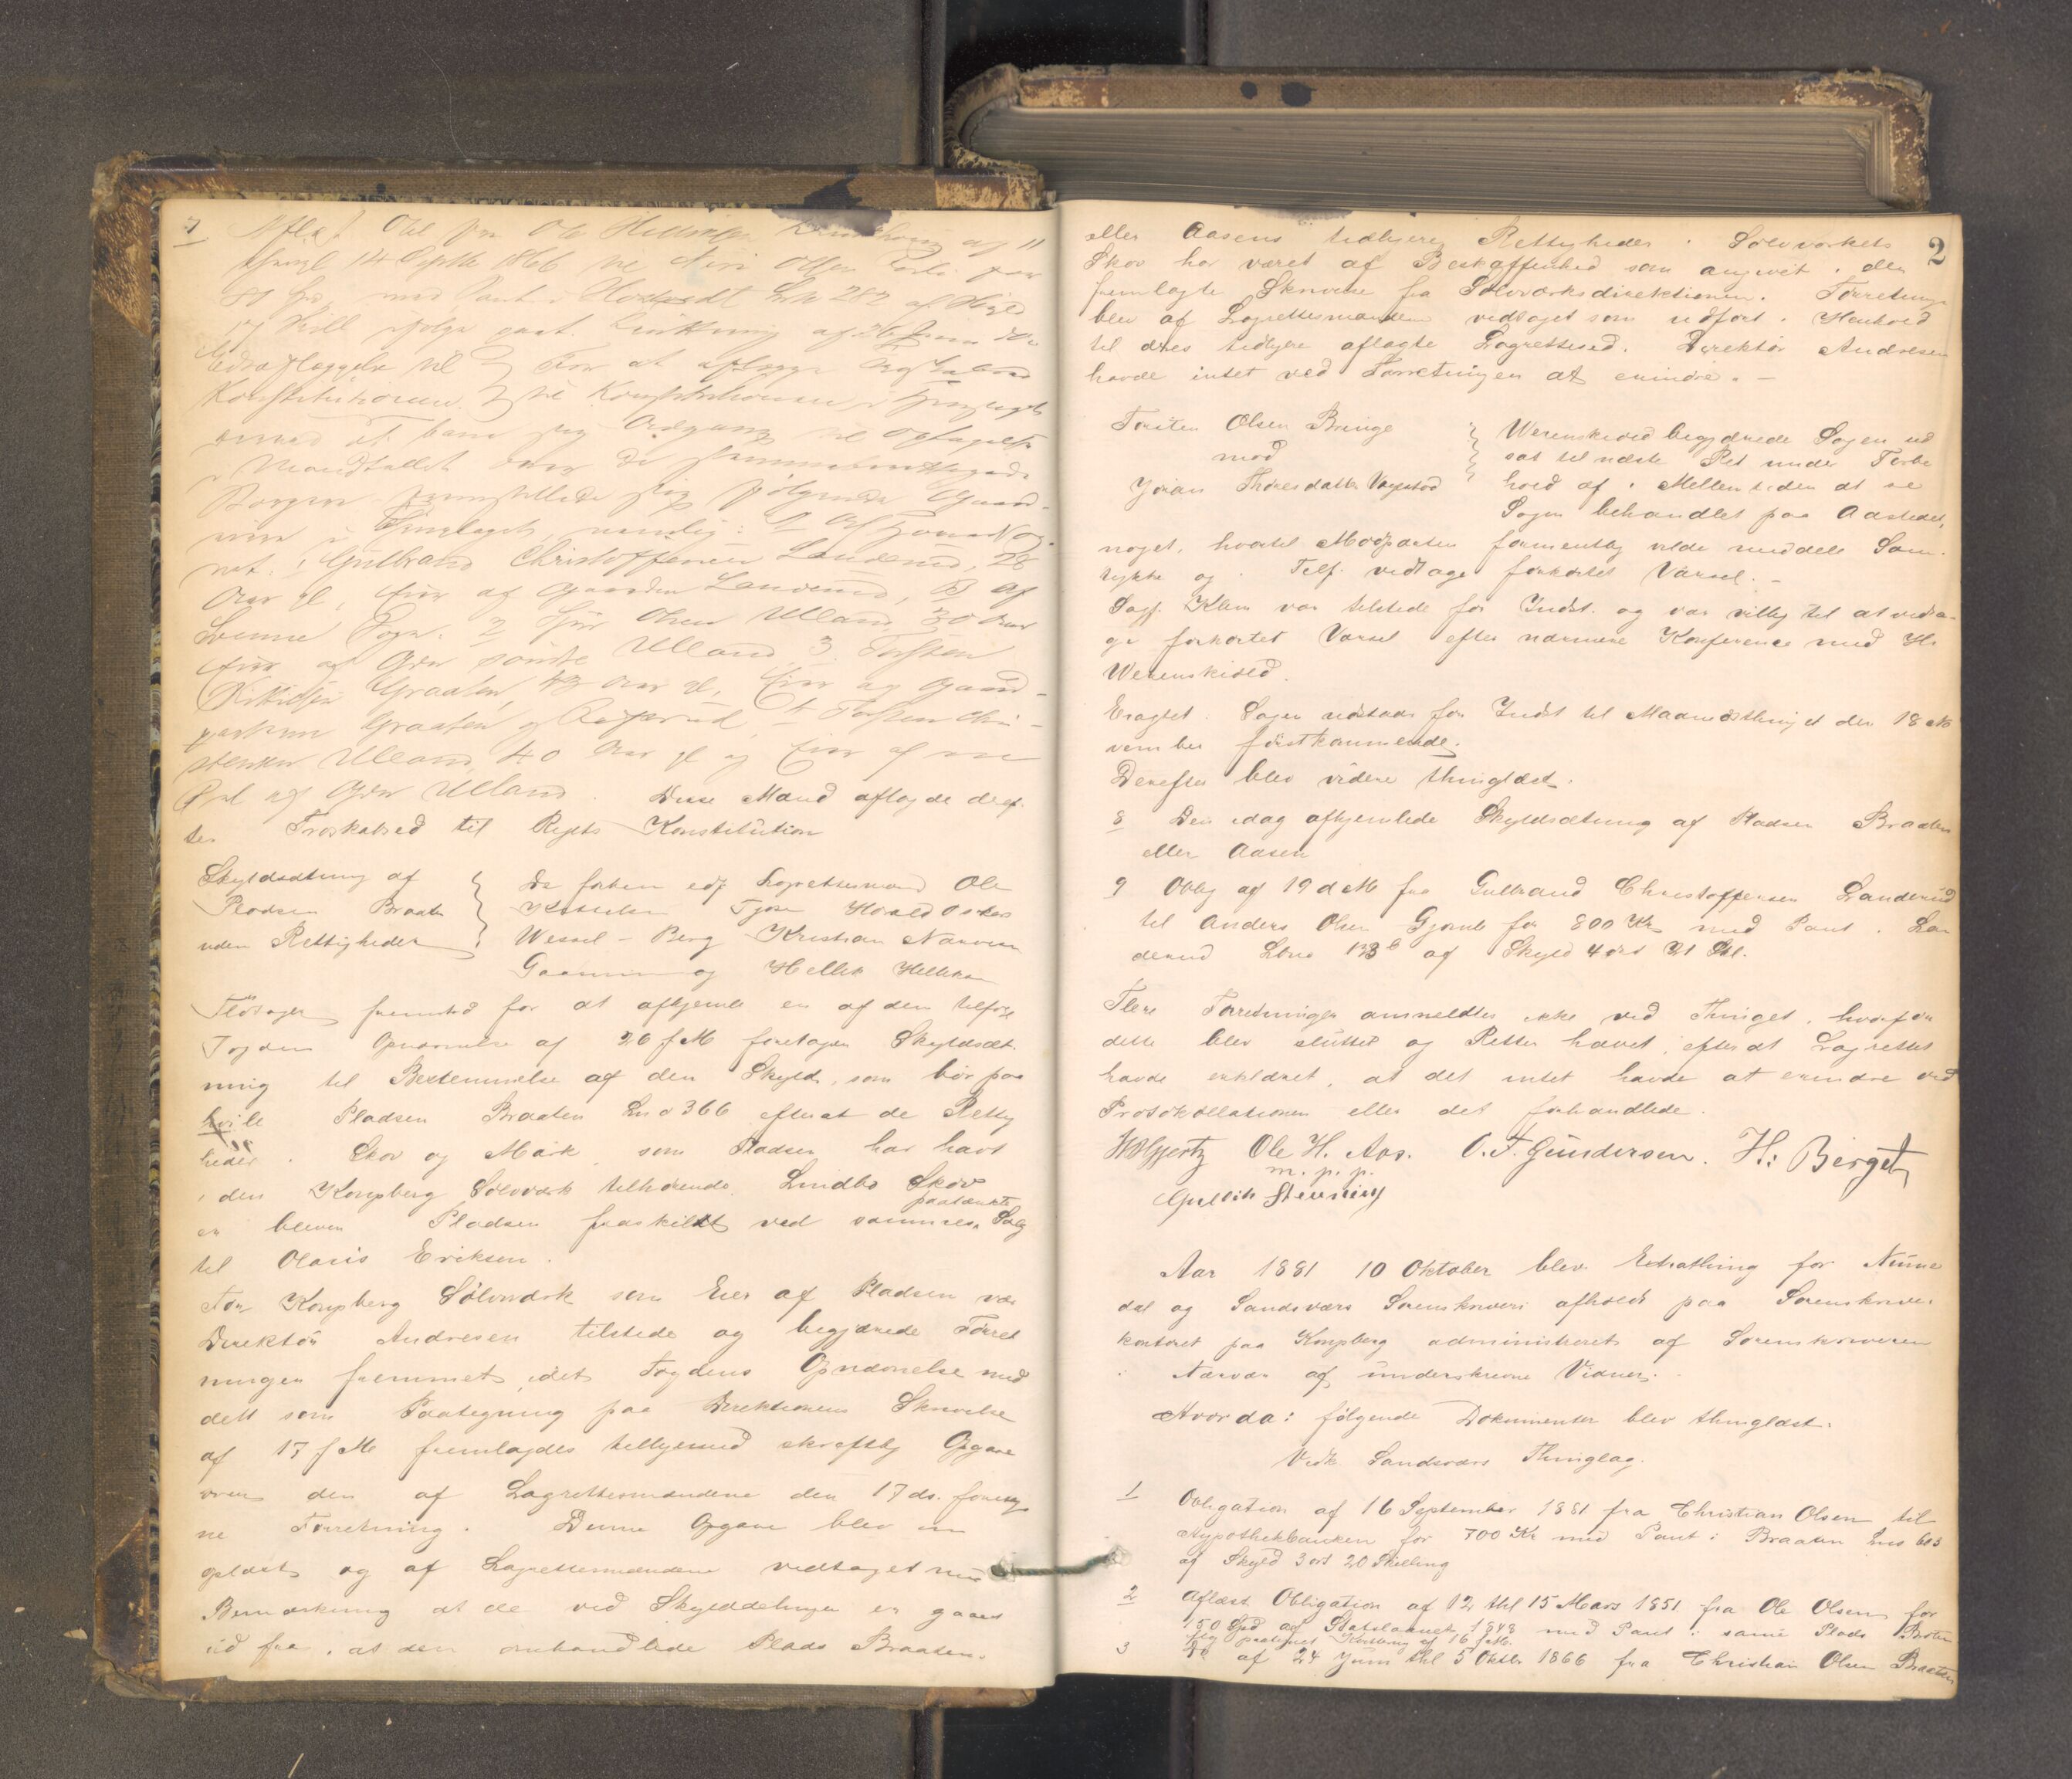 7 Aflæst Obl fra Ole Helliksen af 11
thingl 14 Septb 1866 til Olsen paa
80 Spd, med Pant i Lno 282 af Skyld
17 Skill ifølge paat. Kvittering af 26
Edsaflæggelse til For at aflægge
Konstitutionen. til Konstitutionen i
derved at bane sig Adgang til Optagelse
i Mandtallet over de stemmeberettigede
Borgere fremstillede sig følgende Gaard-
mænd i Thinglaget, nemlig:
1 Gulbrand Christoffersen Landerud, 28
Aar gl, Eier af Gaarden Landerud, B af
Sogn. 2 Olsen Ulland 30 Aar
Eier af Grdn søndre Ulland 3. Torsten
Graaten, 43 Aar gl, Eier af Gaard-
parten Graaten og 4 Torsten Chri-
stensen Ulland 40 Aar gl og Eier af en
Del af Grdn Ulland. Disse Mænd aflagde deref-
ter Troskabsed til Rigets Konstitution
Skyldsætning af
Pladsen Braaten
uden Rettigheder
De forhen edf Lagrettesmænd Ole
Kittelsen Harald Anders
Wessel-Berg Kristian Narvesen
og Hellik Helliksen
fremstod for at afhjemle en af dem ifølge
Fogdens Opnævnelse af 20 f M foretagen Skyldsæt-
ning til Bestemmelse af den Skyld, som bør paa
hvile Pladsen Braaten Lno 366 efterat de Rettig
heder i Skov og Mark, som Pladsen har havt
i den Kongsberg Sølvværk tilhørende Lindbo Skov
er bleven Pladsen fraskildt ved sammes paatænkte Salg
til Olaus Eriksen.
For Kongsberg Sølvværk som Eier af Pladsen var
Direktør Andresen tilstede og begjærede Forret
ningen fremmet, idet Fogdens Opnævnelse med
delt som Paategning paa Direktionens Skrivelse
af 17 f M fremlagdes tilligemed skriftlig Opgave
over den af Lagrettesmændene den 17 ds. foretag
ne Forretning. Denne Opgave blev
oplæst og af Lagrettesmændene vedtaget med
Bemærkning at de ved Skylddelingen er gaaet
ud fra, at den omhandlede Plads Braaten
2
eller Aasens tidligere Rettigheder i Sølvværkets
Skov har været af Beskaffenhed som angivet i den
fremlagte Skrivelse fra Sølvværksdirektionen. Forretning
blev af Lagrettesmændene vedtaget som udført i Henhold
til deres tidligere aflagte Lagrettesed. Direktør Andresen
havde intet ved Forretningen at erindre. –
Torsten Olsen Bringe
mod
Jøran Thoresdatter Vegstad
Werenskiold begjærede Sagen ud
sat til næste Ret under Forbe
hold af i Mellemtiden at se
Sagen behandlet paa Aastedet,
noget, hvortil Modparten formentlig vilde meddele Sam-
tykke og i Tilf. vedtage forkortet Varsel. –
Sagf. Klem var tilstede for Indst. og var villig til at vedta-
ge forkortet Varsel efter nærmere Konference med Hr
Werenskiold.
Eragtet. Sagen udstaar for Indst til Maanedsthinget den 18 No
vember førstkommende.
Derefter blev videre thinglæst.
8 Den idag afhjemlede Skyldsætning af Pladsen Braaten
eller Aasen
9 Oblig af 19 d M fra Gulbrand Christoffersen Landerud
til Anders Olsen for 800 Kr med Pant i Lan
derud Lbno 133 b af Skyld 4 ort 21 Skl.
Flere Forretninger anmeldtes ikke ved Thinget, hvorfor
dette blev sluttet og Retten hævet, efterat Lagrettet
havde erklæret, at det intet havde at erindre ved
Protokollationen eller det forhandlede.
Ole H. Aas. O. T. Gundersen. H: Berget
m. p. p.
Gullik Stenning
Aar 1881 10 Oktober blev Extrathing for Nume
dal og Sandsværs Sorenskriveri afholdt paa Sorenskriver
kontoret paa Kongsberg administreret af Sorenskriveren
i Nærvær af underskrevne Vidner.
Hvorda: følgende Dokumenter blev thinglæst.
Vedk. Sandsvær Thinglag.
1 Obligation af 16 September 1881 fra Christian Olsen til
Hypothekbanken for 700 Kr med Pant i Braaten Lno 603
af Skyld 3 ort 20 Skilling
2 Aflæst Obligation af 12 thl 15 Mars 1851 fra Ole Olsen for
150 Spd af Statslaanet 1848 med Pant i samme Plads Braaten
iflg paategnet Kvittering af 16 f M.
3 Do af 24 Juni thl 5 Oktbr 1866 fra Christian Olsen Braaten